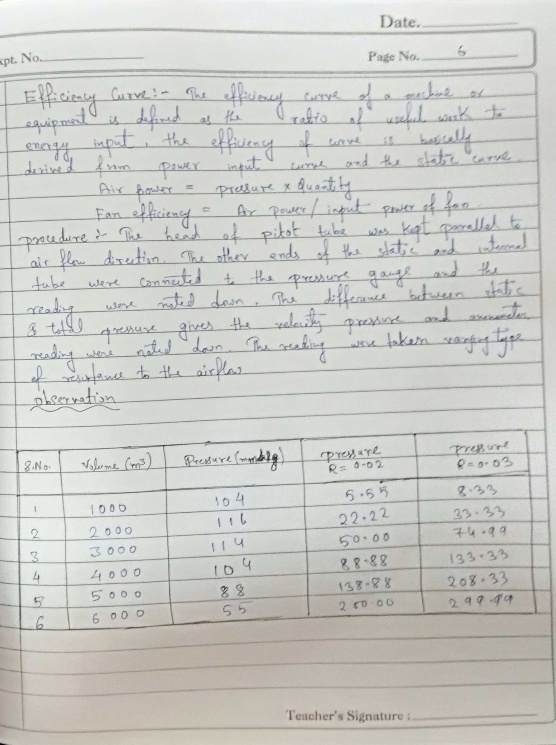 Date.
xpt. No.
Page No. 6
Efficiency Curve:- The efficiency curve of a machine or
equipment is defined as the ratio of useful work to
energy input, the efficiency of curve is basically
derived from power input curve and the static curve.
Air power = pressure x Quantity
Fan efficiency = Air power / input power of fan
procedure :- The head of pitot tube was kept parallel to
air flow direction. The other ends of the static and internal
tube were connected to the pressure gauge and the
reading were noted down. The difference between static
& total pressure gives the velocity pressure and anemometer
reading were noted down. The reading were taken varying type
of resistance to the airflow
observation
S.No. Volume (m3) Pressure pressure R= 0.02 pressure R=0.03
1 1000 104 5.55 8.33
2 2000 116 22.22 33.33
3 3000 114 50.00 74.99
4 4000 104 88.88 133.33
5 5000 88 138.88 208.33
6 6000 55 200.00 299.99
Teacher's Signature :